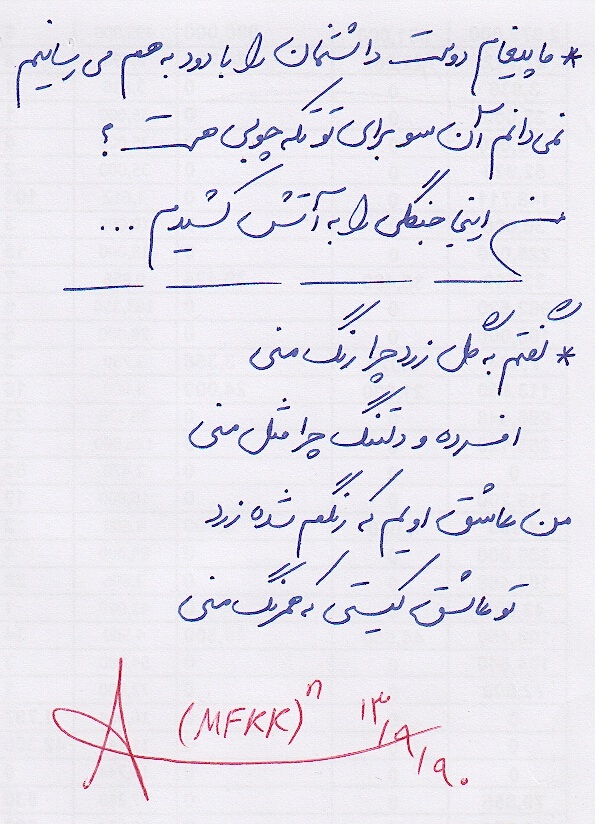 * ما پیغام دوست داشتنمان را با دود به هم می رسانیم
نمی دانم آن سو برای تو تکه چوبی هست ؟
من اینجا جنگلی را به آتش کشیدم ...
* گفتم به گل زرد چرا رنگ منی
افسرده و دلتنگ چرا مثل منی
من عاشق اویم که رنگم شده زرد
تو عاشق کیستی که همرنگ منی
(MFKK)ⁿ ۱۳/۹/۹۰